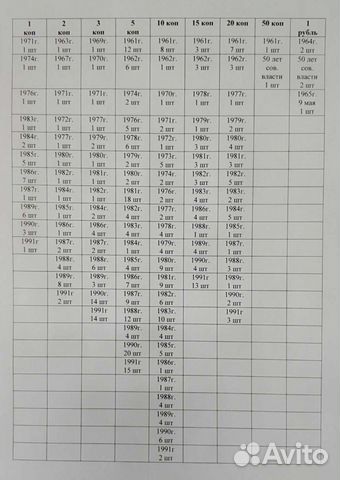 1 2 3 5 10 коп 15 коп 20 коп 50 коп 1
коп коп коп коп рубль
1971г. 1963г. 1961г. 1961г. 1961г. 1961г. 1961г. 1961г. 1964г.
1 шт 1 шт 1 шт 12 шт 8 шт 3 шт 7 шт 1 шт 2 шт
1974г. 1967г. 1970г. 1962г. 1962г. 1962г. 1962г. 50 лет 50 лет
1 шт 1 шт 1 шт 6 шт 1 шт 3 шт 3 шт сов. сов.
власти власти
1 шт 2 шт
1976г. 1971г. 1971г. 1974г. 1970г. 1978г. 1977г. 1965г.
1 шт 1 шт 1 шт 2 шт 1 шт 1 шт 1 шт 9 мая
1 шт
1983г. 1972г. 1977г. 1976г. 1971г. 1979г. 1979г.
1 шт 1 шт 1 шт 5 шт 2 шт 1 шт 2 шт
1984г. 1977г. 1979г. 1978г. 1972г. 1980г. 1980г.
2 шт 1 шт 2 шт 6 шт 1 шт 3 шт 4 шт
1985г. 1980г. 1980г. 1979г. 1973г. 1981г. 1981г.
5 шт 1 шт 1 шт 2 шт 5 шт 3 шт 3 шт
1986г. 1982г. 1981г. 1980г. 1974г. 1982г. 1982г.
7 шт 1 шт 1 шт 4 шт 2 шт 2 шт 5 шт
1987г. 1984г. 1982г. 1981г. 1976г. 1983г. 1983г.
1 шт 1 шт 2 шт 18 шт 4 шт 4 шт 2 шт
1989г. 1985г. 1984г. 1982г. 1977г. 1986г. 1984г.
6 шт 1 шт 4 шт 2 шт 4 шт 4 шт 5 шт
1990г. 1986г. 1986г. 1983г. 1978г. 1988г. 1986г.
3 шт 1 шт 4 шт 4 шт 4 шт 1 шт 1 шт
1991г 1987г. 1987г. 1984г. 1979г. 1989г. 1987г.
1 шт 2 шт 2 шт 2 шт 4 шт 4 шт 1 шт
1988г. 1988г. 1985г. 1980г. 1990г. 1988г.
4 шт 6 шт 4 шт 9 шт 4 шт 3 шт
1989г. 1989г. 1986г. 1981г. 1991г 1989г.
8 шт 7 шт 9 шт 11 шт 13 шт 5 шт
1991г 1990г. 1987г. 1982г. 1990г.
2 шт 14 шт 9 шт 6 шт 2 шт
1991г 1988г. 1983г. 1991г
14 шт 12 шт 10 шт 3 шт
1989г. 1984г.
4 шт 4 шт
1990г. 1985г.
20 шт 5 шт
1991г 1986г.
15 шт 1 шт
1987г.
1 шт
1988г.
4 шт
1989г.
4 шт
1990г.
6 шт
1991г
2 шт
Avito